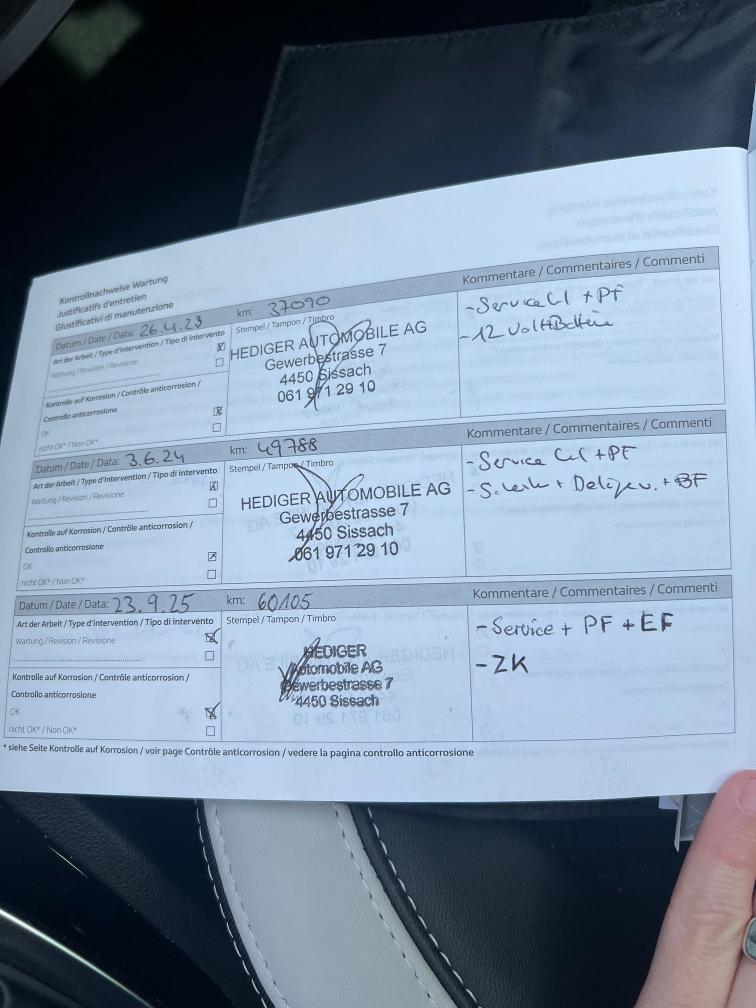 Kontrollnachweise Wartung
Justificatifs d'entretien
Giustificativi di manutenzione
Datum / Date / Data: 26.4.23
km: 37090
Kommentare / Commentaires / Commenti
Art der Arbeit / Type d'intervention / Tipo di intervento
Wartung / Revision / Revisione
Kontrolle auf Korrosion / Contrôle anticorrosion /
Controllo anticorrosione
OK
nicht OK* / Non OK*
Stempel / Tampon / Timbro
HEDIGER AUTOMOBILE AG
Gewerbestrasse 7
4450 Sissach
061 971 29 10
- Service + PF
- 12 Volt Batterie
Datum / Date / Data: 3.6.24
km: 49788
Kommentare / Commentaires / Commenti
Art der Arbeit / Type d'intervention / Tipo di intervento
Wartung / Revision / Revisione
Kontrolle auf Korrosion / Contrôle anticorrosion /
Controllo anticorrosione
OK
nicht OK* / Non OK*
Stempel / Tampon / Timbro
HEDIGER AUTOMOBILE AG
Gewerbestrasse 7
4450 Sissach
061 971 29 10
- Service + PF
+ + BF
Datum / Date / Data: 23.9.25
km: 60105
Kommentare / Commentaires / Commenti
Art der Arbeit / Type d'intervention / Tipo di intervento
Wartung / Revision / Revisione
Kontrolle auf Korrosion / Contrôle anticorrosion /
Controllo anticorrosione
OK
nicht OK* / Non OK*
Stempel / Tampon / Timbro
HEDIGER
Automobile AG
Gewerbestrasse 7
4450 Sissach
- Service + PF + EF
- ZK
* siehe Seite Kontrolle auf Korrosion / voir page Contrôle anticorrosion / vedere la pagina controllo anticorrosione